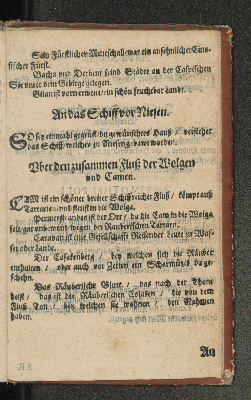 Sein Fürstlicher Marschall war ein ansehnlicher Cirassischer Fürst.
Bacha und Derbent seind Städte an der Caspischen
See unter dem Gebirge gelegen.
Gilan ist vorerwente / ein schön fruchtbar Landt.
An das Schiff vor Niesen.
SO sey einmahl gegrüst / du gewünschtes Hauß /
das Schiff / welches zu Niesen gebawet worden.
Vber den zusammen Fluß der Wolgen
und Camen.
CAM ist ein schöner breiter Schiffreicher Fluß / kömpt auß
Tartarien und fleust in die Wolga.
Permerski landt ist der Ort / da die Cam in die Wolga
wegen der Rauberischen Tartarn.
Caravan ist eine Gesellschafft Reisender Leute zu Wasser oder Lande.
Der Cosakenberg / bey welchen sich die Räuber
enthalten / aber auch vor Zeiten ein Scharmützel
Das Räuberische Blutt / das nach der Thone
heist / das ist die Räuberischen Cosaken / die von dem
Fluß Ton / bey welchen sie wohnen / den Nahmen
haben.
An